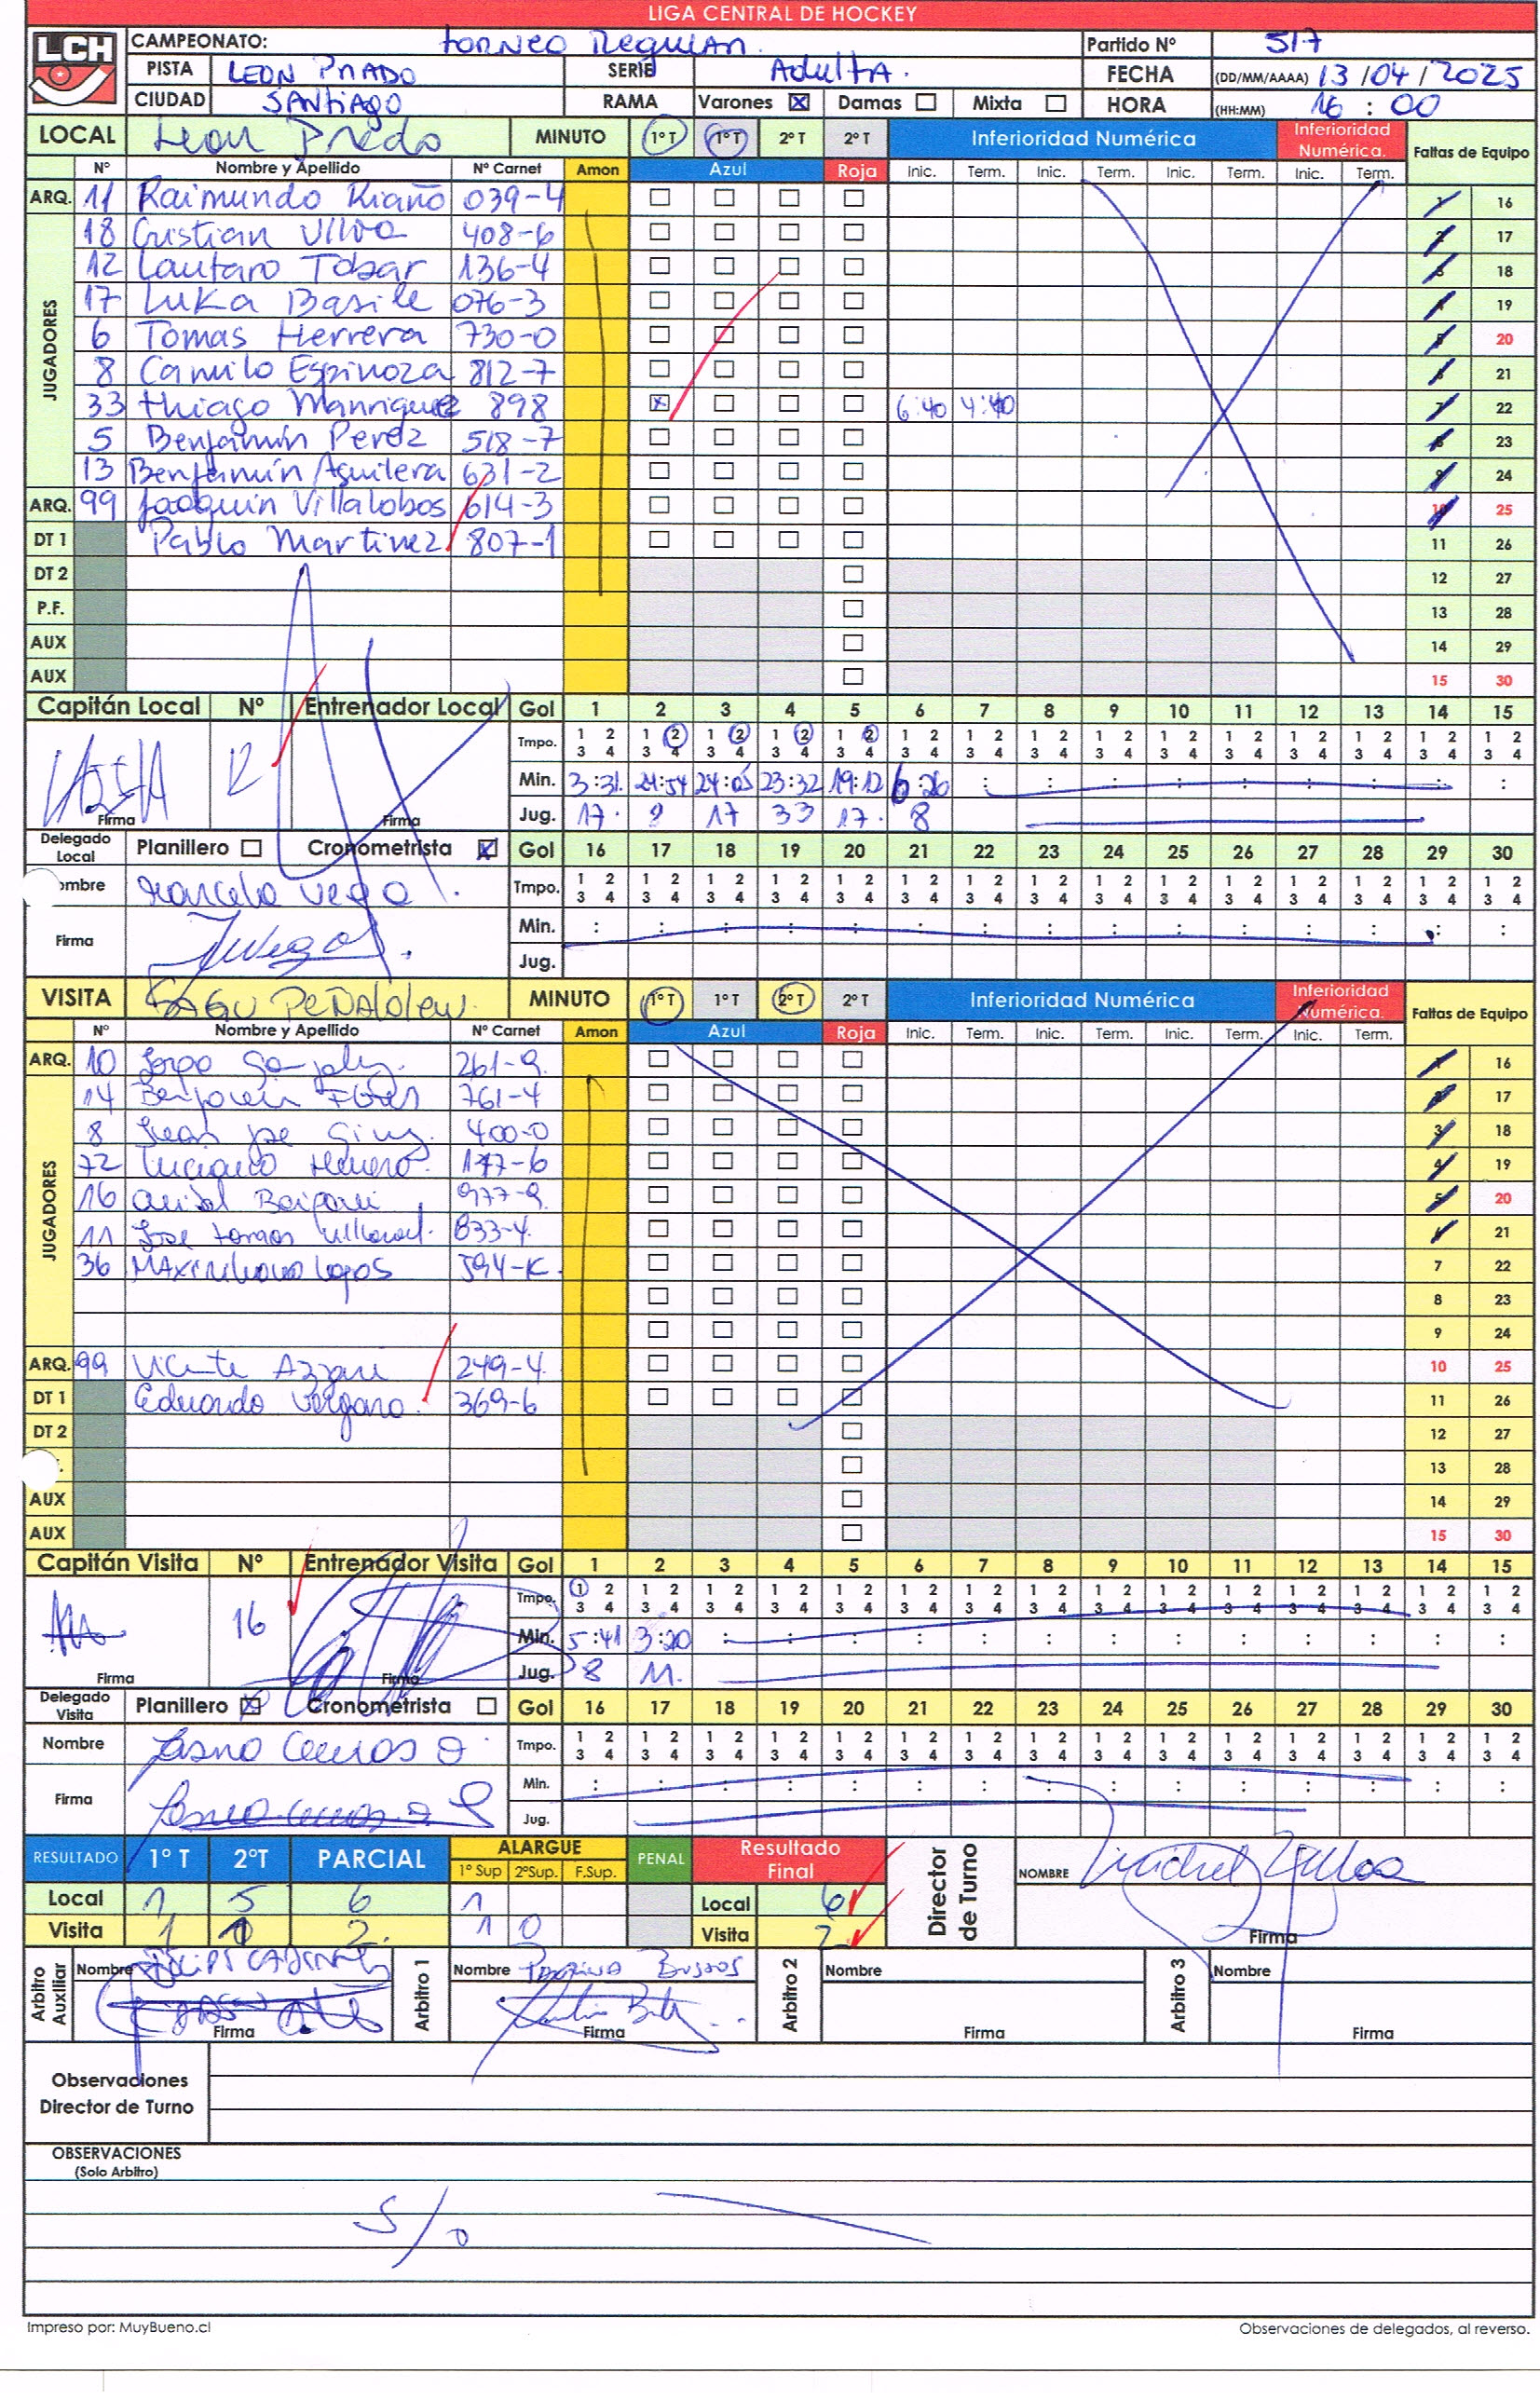 LIGA CENTRAL DE HOCKEY
LCH
CAMPEONATO: Torneo Regular Partido Nº 517
PISTA LEON PRADO SERIE Adulta. FECHA (DD/MM/AAAA) 13/04/2025
CIUDAD SANTIAGO RAMA Varones ☒ Damas ☐ Mixta ☐ HORA (HH:MM) 16:00
LOCAL Leon Prado MINUTO 1º T 1º T 2º T 2º T Inferioridad Numérica Inferioridad Numérica. Faltas de Equipo
Nº Nombre y Apellido Nº Carnet Amon Azul Roja Inic. Term. Inic. Term. Inic. Term. Inic. Term.
ARQ. 11 Raimundo Riaño 039-4 1 16
JUGADORES
18 Cristian Ulloa 408-6 2 17
12 Lautaro Tobar 136-4 3 18
17 Luka Basile 076-3 4 19
6 Tomas Herrera 730-0 5 20
8 Camilo Espinoza 812-7 6 21
33 Thiago Manriquez 898 ☒ 6:40 4:40 7 22
5 Benjamín Perez 518-7 8 23
13 Benjamín Aguilera 631-2 9 24
ARQ. 99 Joaquín Villalobos 614-3 10 25
DT 1 Pablo Martinez 807-1 11 26
DT 2 12 27
P.F. 13 28
AUX 14 29
AUX 15 30
Capitán Local Nº Entrenador Local Gol 1 2 3 4 5 6 7 8 9 10 11 12 13 14 15
Tmpo. 1 2 1 2 1 2 1 2 1 2 1 2 1 2 1 2 1 2 1 2 1 2 1 2 1 2 1 2 1 2
3 4 3 4 3 4 3 4 3 4 3 4 3 4 3 4 3 4 3 4 3 4 3 4 3 4 3 4 3 4
12 Min. 3:31 24:54 24:05 23:32 19:12 6:26
Firma Firma Jug. 17 17 33 17 8
Delegado Local Planillero ☐ Cronometrista ☒ Gol 16 17 18 19 20 21 22 23 24 25 26 27 28 29 30
ombre Marcelo Vega Tmpo. 1 2 1 2 1 2 1 2 1 2 1 2 1 2 1 2 1 2 1 2 1 2 1 2 1 2 1 2 1 2
3 4 3 4 3 4 3 4 3 4 3 4 3 4 3 4 3 4 3 4 3 4 3 4 3 4 3 4 3 4
Firma Min.
Jug.
VISITA PEÑALOLEN MINUTO 1º T 1º T 2º T 2º T Inferioridad Numérica Inferioridad Numérica. Faltas de Equipo
Nº Nombre y Apellido Nº Carnet Amon Azul Roja Inic. Term. Inic. Term. Inic. Term. Inic. Term.
ARQ. 10 Jorge 261-9 1 16
JUGADORES
14 Benjamin Flores 761-4 2 17
8 400-0 3 18
72 Luciano 177-6 4 19
16 977-9 5 20
11 Jose Tomas 833-4 6 21
36 Maximiliano Lagos 594-K 7 22
8 23
9 24
ARQ. 99 Vicente 249-4 10 25
DT 1 Eduardo Vergara 369-6 11 26
DT 2 12 27
13 28
AUX 14 29
AUX 15 30
Capitán Visita Nº Entrenador Visita Gol 1 2 3 4 5 6 7 8 9 10 11 12 13 14 15
Tmpo. 1 2 1 2 1 2 1 2 1 2 1 2 1 2 1 2 1 2 1 2 1 2 1 2 1 2 1 2 1 2
3 4 3 4 3 4 3 4 3 4 3 4 3 4 3 4 3 4 3 4 3 4 3 4 3 4 3 4 3 4
16 Min. 5:41 3:20
Firma Firma Jug. 8 11
Delegado Visita Planillero ☒ Cronometrista ☐ Gol 16 17 18 19 20 21 22 23 24 25 26 27 28 29 30
Nombre Tmpo. 1 2 1 2 1 2 1 2 1 2 1 2 1 2 1 2 1 2 1 2 1 2 1 2 1 2 1 2 1 2
3 4 3 4 3 4 3 4 3 4 3 4 3 4 3 4 3 4 3 4 3 4 3 4 3 4 3 4 3 4
Firma Min.
Jug.
RESULTADO 1º T 2ºT PARCIAL ALARGUE PENAL Resultado Final Director de Turno NOMBRE
1º Sup 2ºSup. F.Sup.
Local 1 5 6 1 Local 6
Visita 1 2 1 0 Visita 2 Firma
Arbitro Auxiliar Nombre Arbitro 1 Nombre Bustos Arbitro 2 Nombre Arbitro 3 Nombre
Firma Firma Firma Firma
Observaciones Director de Turno
OBSERVACIONES
(Solo Arbitro)
S/O
Impreso por: MuyBueno.cl Observaciones de delegados, al reverso.